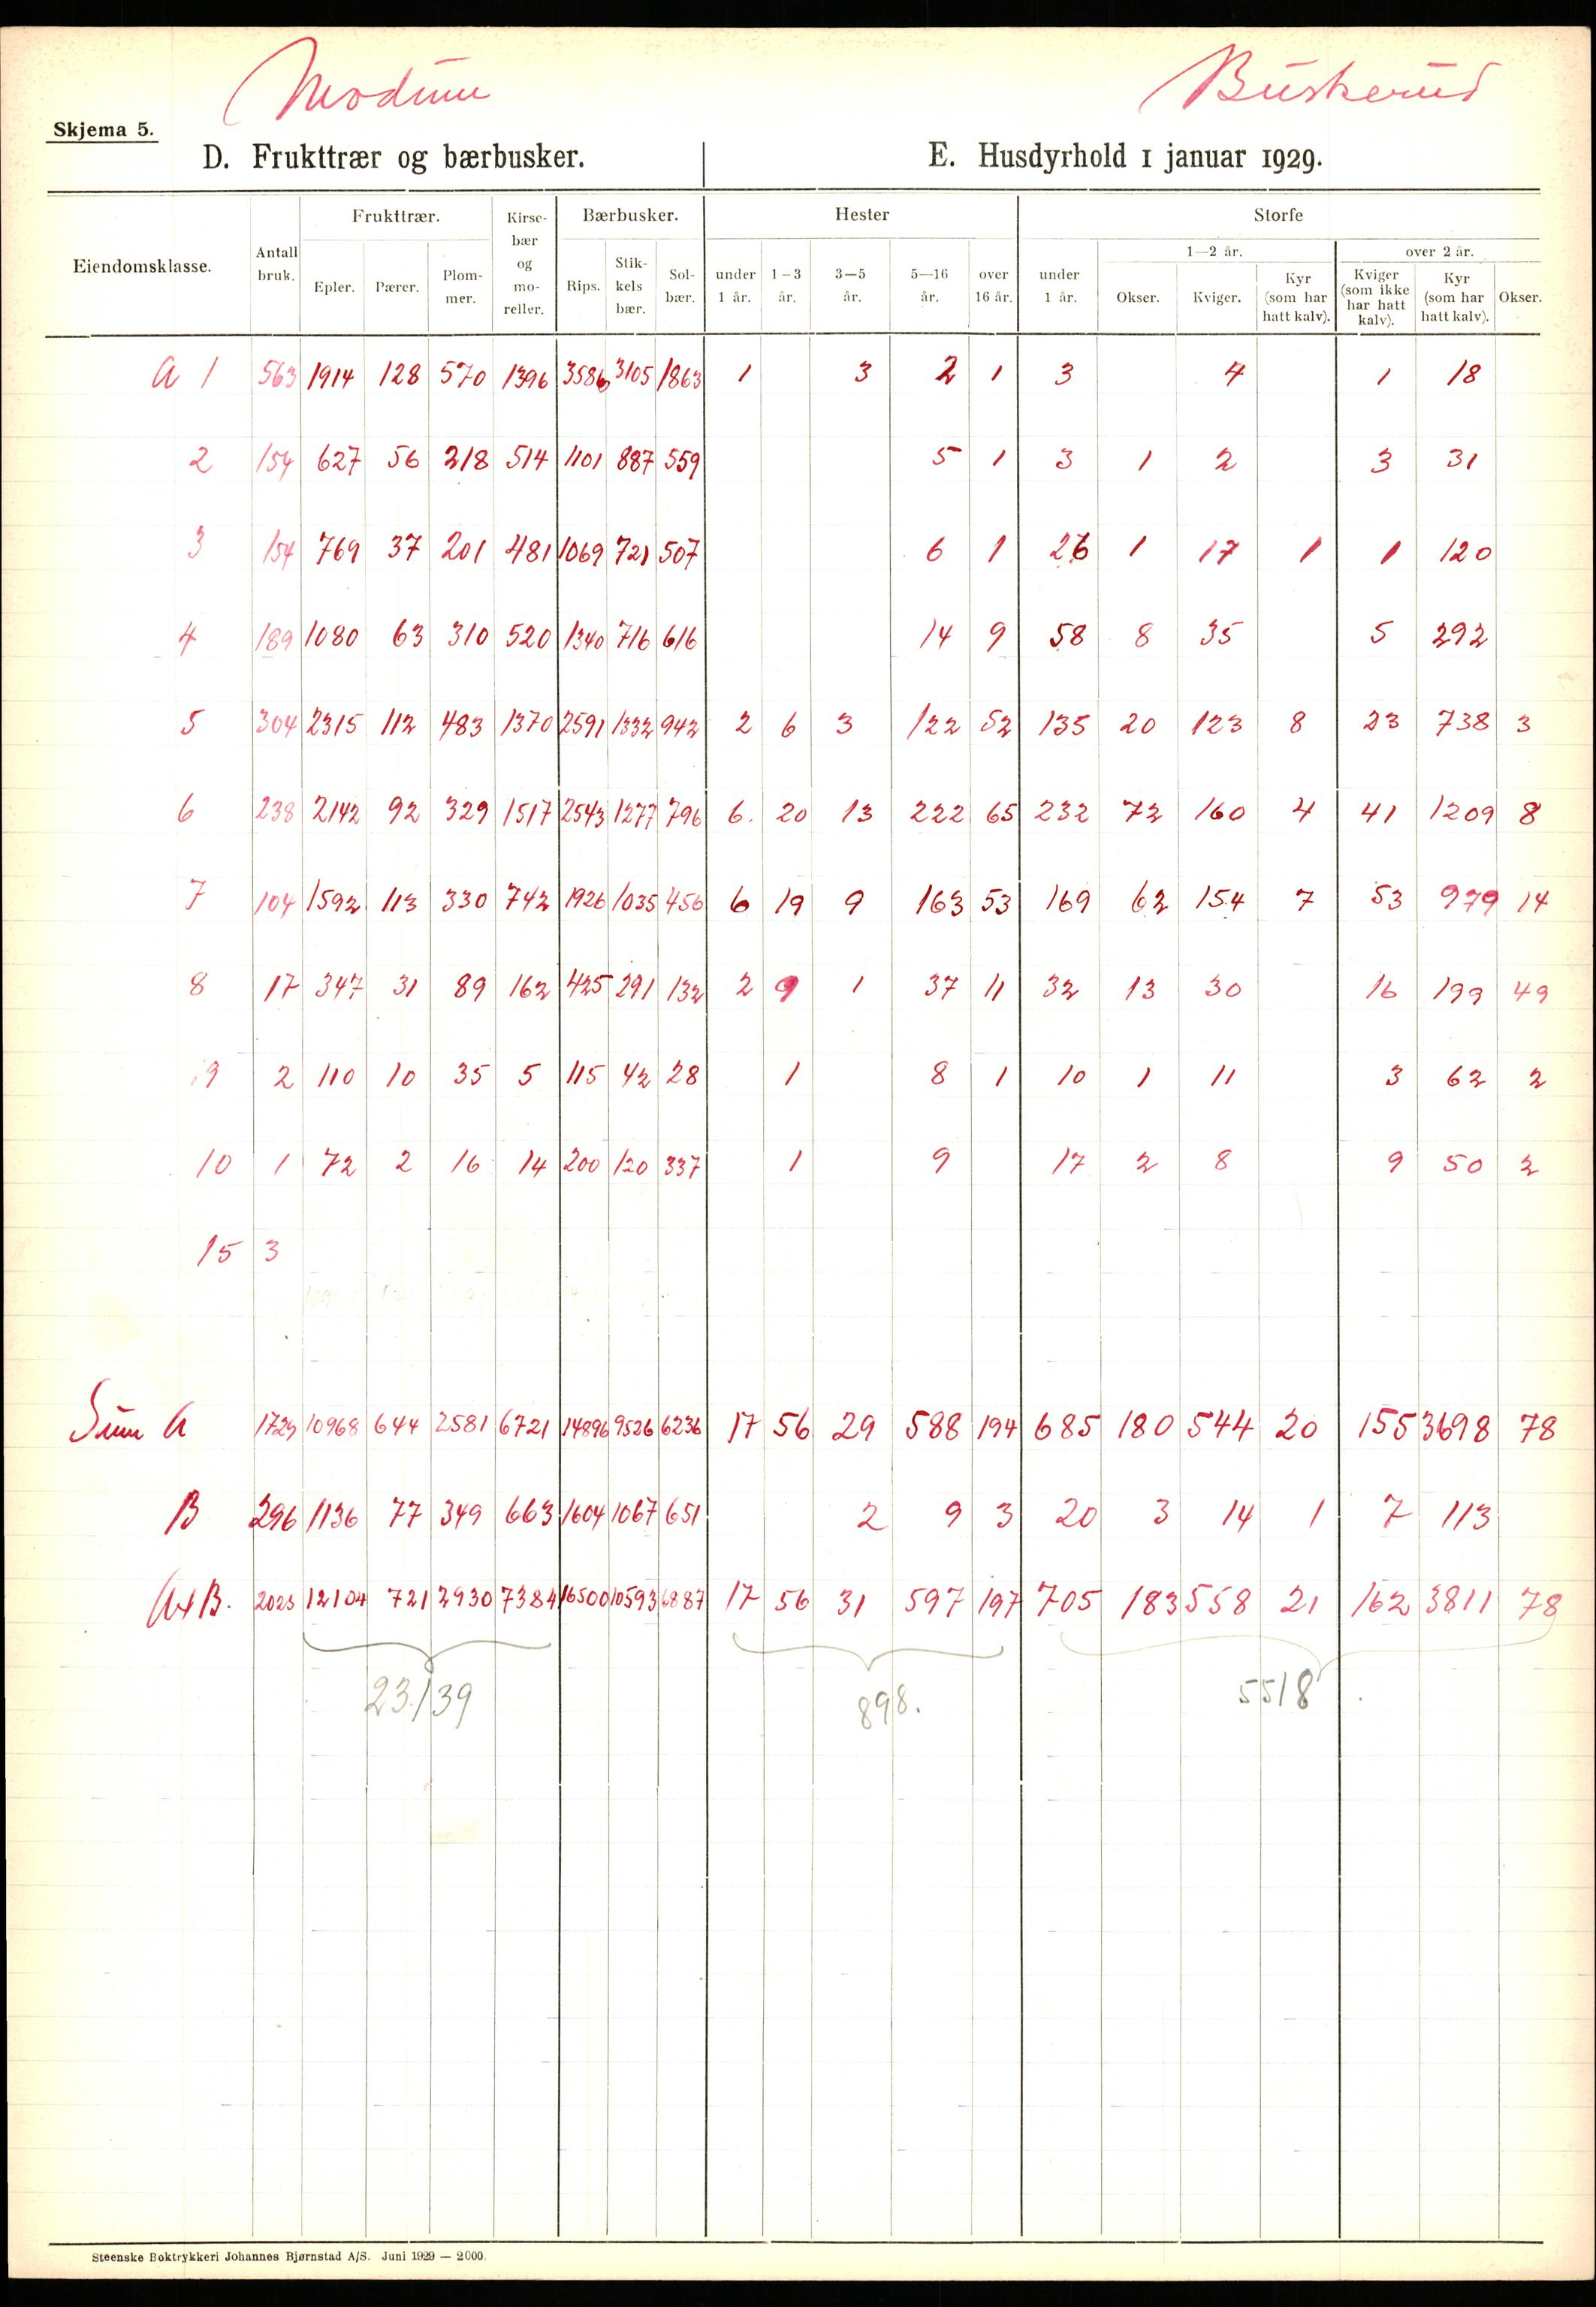 Modum Buskerud
Skjema 5.
D. Frukttrær og bærbusker. E. Husdyrhold 1 januar 1929.
Eiendomsklasse. Antall bruk. Frukttrær. Epler. Pærer. Plom-mer. Kirse-bær og mo-reller. Bærbusker. Rips. Stik-kels bær. Sol-bær. Hester under 1 år. 1-3 år. 3-5 år. 5-16 år. over 16 år. Storfe under 1 år. 1-2 år. Okser. Kviger. Kyr (som har hatt kalv). over 2 år. Kviger (som ikke har hatt kalv). Kyr (som har hatt kalv). Okser.
A 1 563 1914 128 570 1396 3586 3105 1863 1 3 2 1 3 4 1 18
2 154 627 56 218 514 1101 887 559 5 1 3 1 2 3 31
3 154 769 37 201 481 1069 721 507 6 1 26 1 17 1 1 120
4 189 1080 63 310 520 1340 716 616 14 9 58 8 35 5 292
5 304 2315 112 483 1370 2591 1332 942 2 6 3 122 52 135 20 123 8 23 738 3
6 238 2142 92 329 1517 2543 1277 796 6. 20 13 222 65 232 72 160 4 41 1209 8
7 104 1592 113 330 742 1926 1035 456 6 19 9 163 53 169 62 154 7 53 979 14
8 17 347 31 89 162 425 291 132 2 9 1 37 11 32 13 30 16 199 49
9 2 110 10 35 5 115 42 28 1 8 1 10 1 11 3 62 2
10 1 72 2 16 14 200 120 337 1 9 17 2 8 9 50 2
15 3
Sum A 1729 10968 644 2581 6721 14896 9526 6236 17 56 29 588 194 685 180 544 20 155 3698 78
B 296 1136 77 349 663 1604 1067 651 2 9 3 20 3 14 1 7 113
A+B. 2025 12104 721 2930 7384 16500 10593 6887 17 56 31 597 197 705 183 558 21 162 3811 78
23.139 898. 5518
Steenske Boktrykkeri Johannes Bjørnstad A/S. Juni 1929 — 2000.